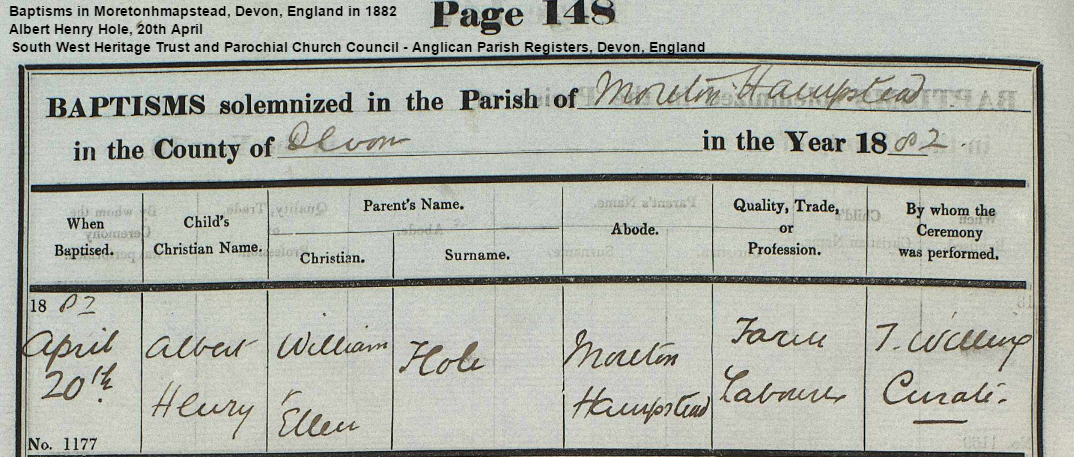 Baptisms in Moretonhmapstead, Devon, England in 1882
Albert Henry Hole, 20th April
South West Heritage Trust and Parochial Church Council - Anglican Parish Registers, Devon, England
Page 148
BAPTISMS solemnized in the Parish of Moreton Hampstead
in the County of Devon in the Year 1882.
When Baptised.
Child's Christian Name.
Parent's Name.
Christian.
Surname.
Abode.
Quality, Trade, or Profession.
By whom the Ceremony was performed.
1882
April
20th
No. 1177
Albert
Henry
William
Ellen
Hole
Moreton
Hampstead
Farm
Labourer
T. Willing
Curate.